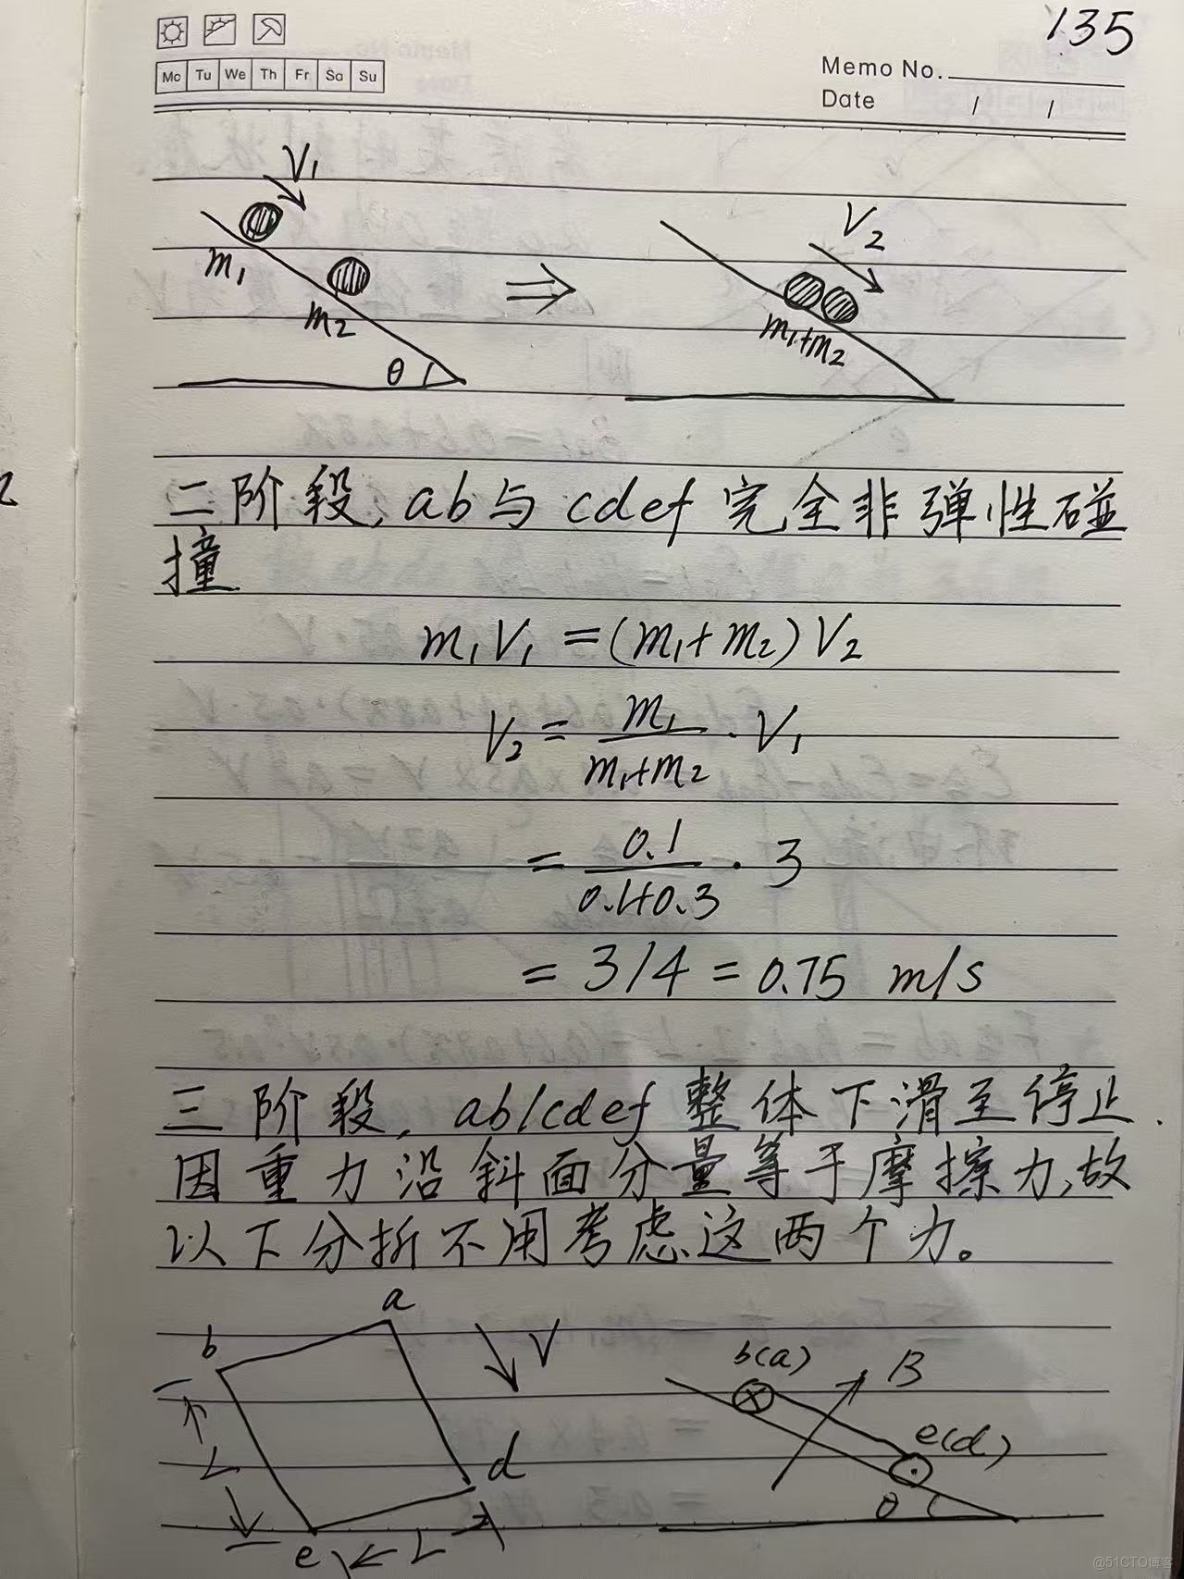 135
Mo Tu We Th Fr Sa Su
Memo No.
Date / /
V₁
m₁
m₂
θ
⇒
V₂
m₁+m₂
二阶段,ab与cdef完全非弹性碰
撞
m₁V₁=(m₁+m₂)V₂
V₂=m₁/(m₁+m₂)·V₁
=0.1/(0.1+0.3)·3
=3/4=0.75 m/s
三阶段,ab/cdef整体下滑至停止.
因重力沿斜面分量等于摩擦力,故
以下分折不用考虑这两个力。
a
b
V
L
d
e
L
b(a)
B
e(d)
θ
@51CTO博客